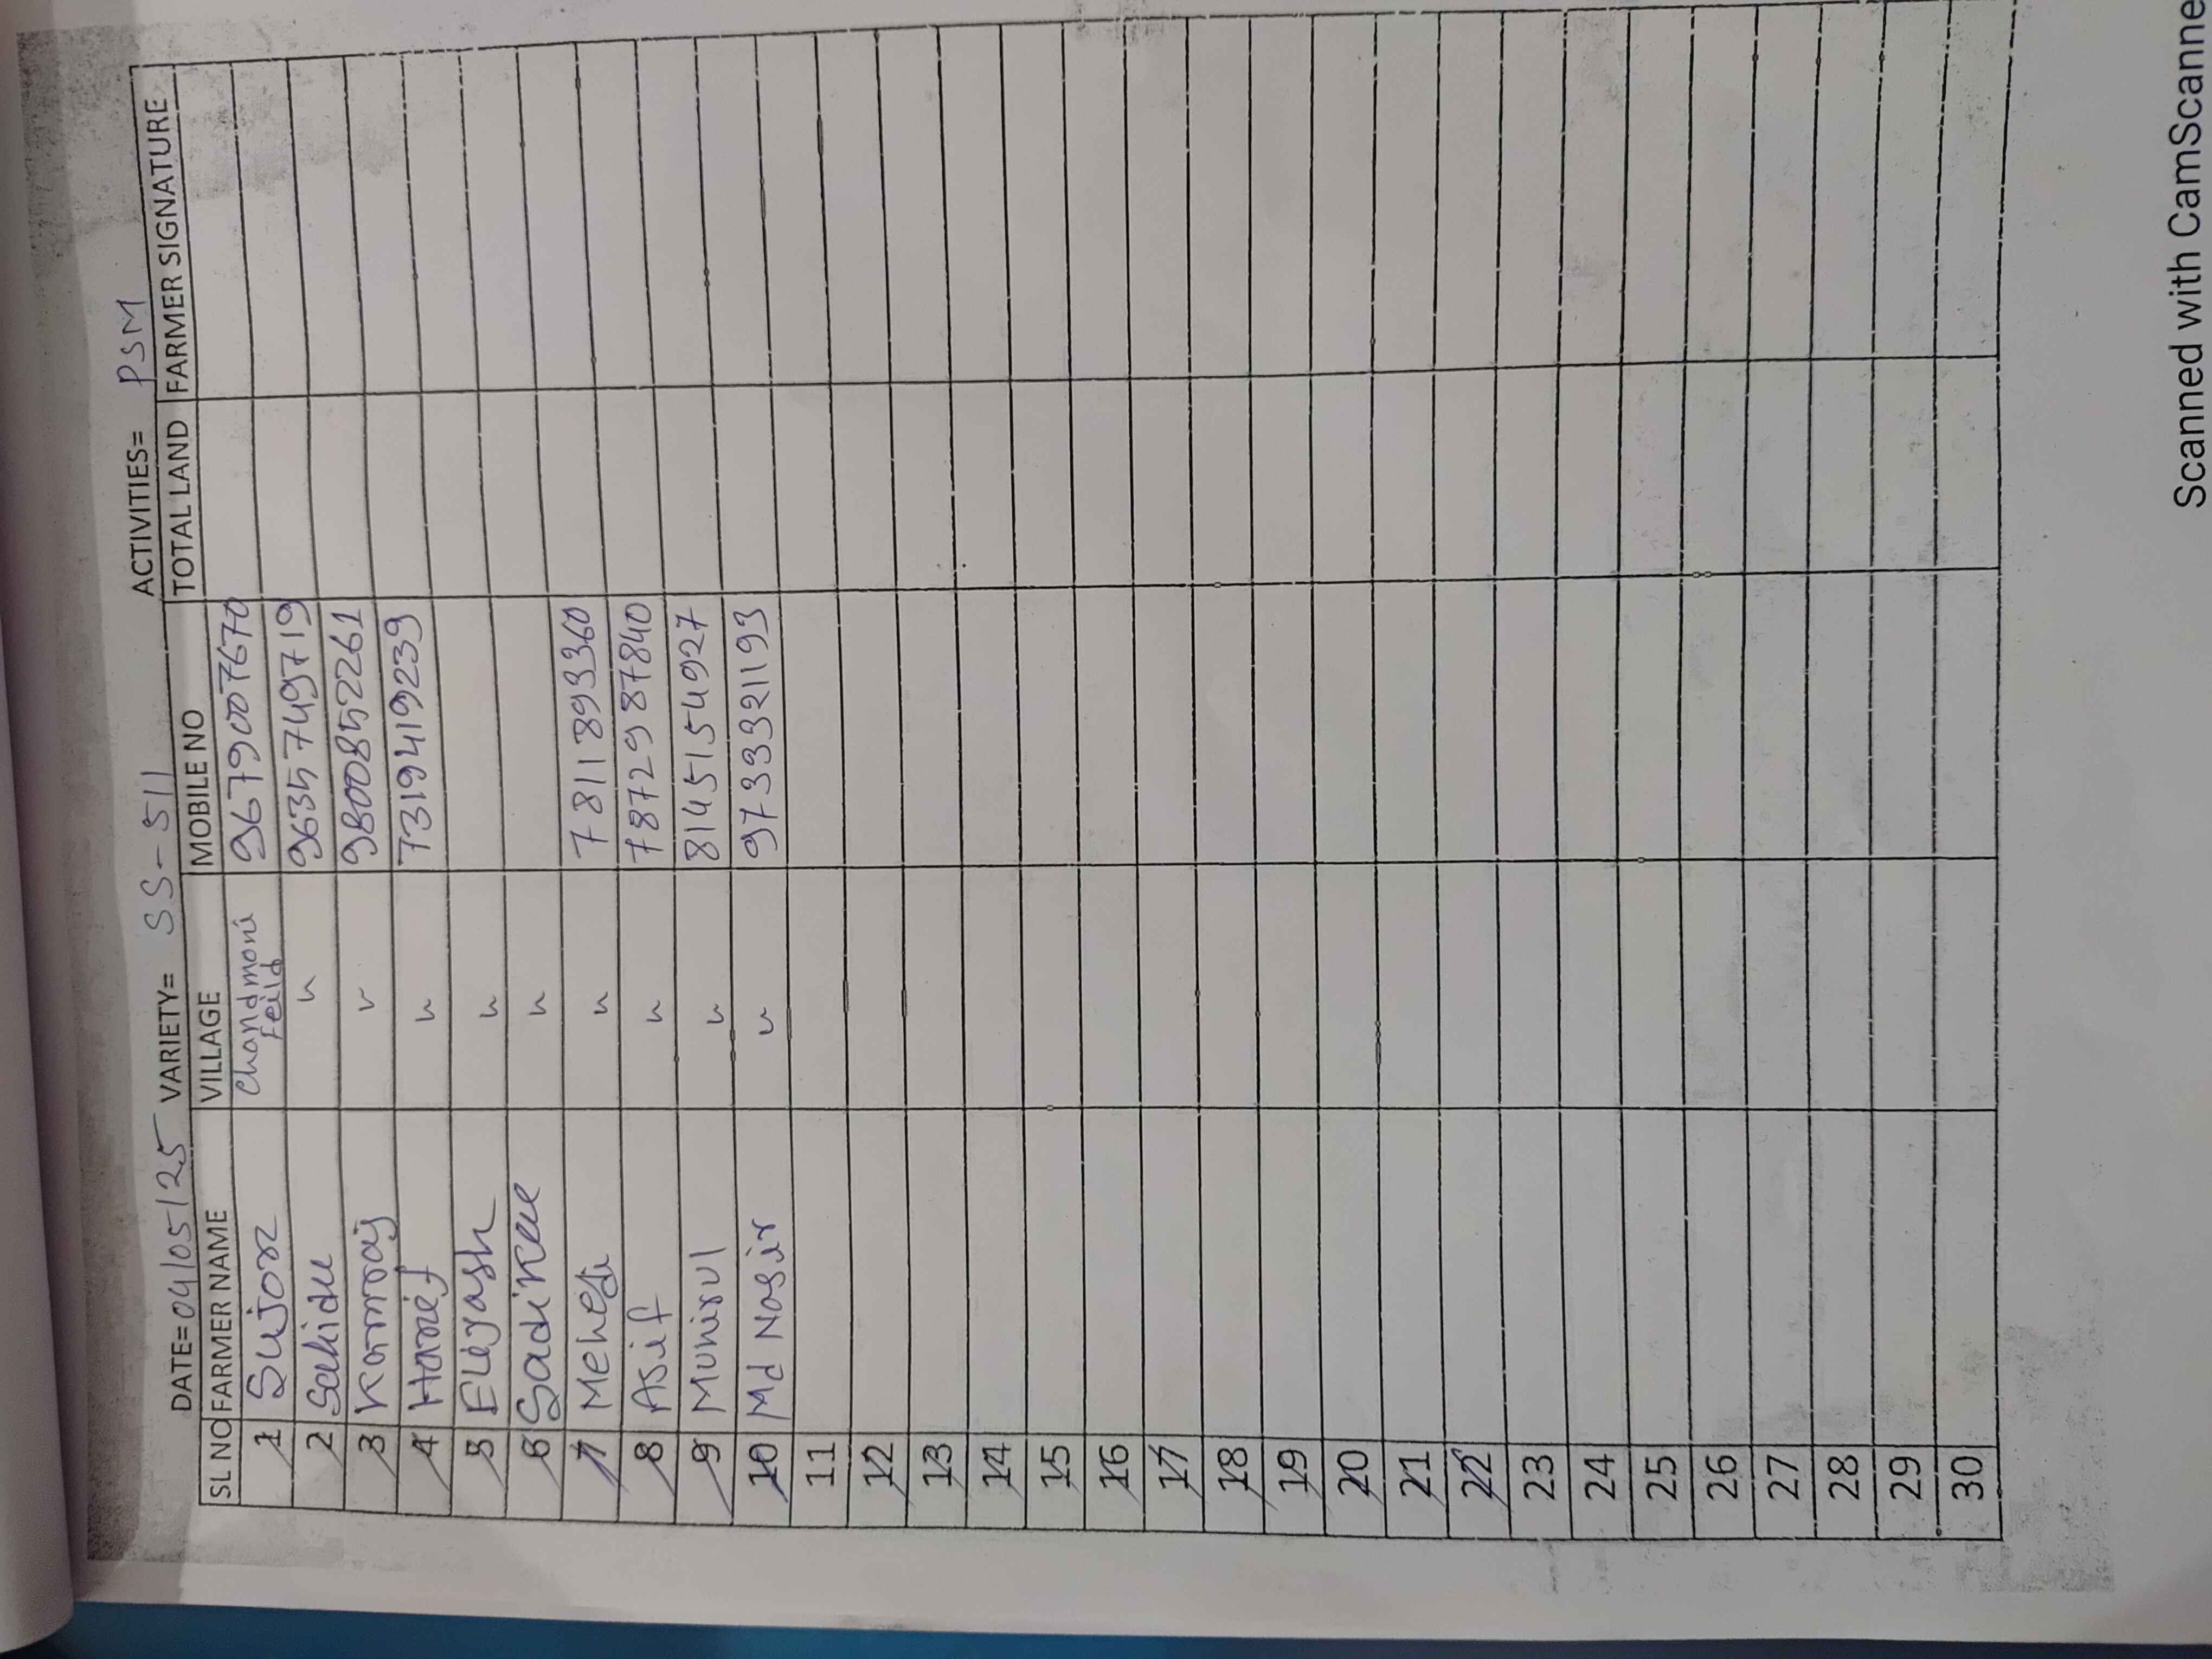 DATE= 04/05/25 VARIETY= SS-511 ACTIVITIES= PSM
SL NO FARMER NAME VILLAGE MOBILE NO TOTAL LAND FARMER SIGNATURE
1 Sujon Chandmoni Feild 9679007670
2 Sahidu " 9635749719
3 Kamraj " 9800852261
4 Hanef " 7319419239
5 Eliyash "
6 Sadikul "
7 Mehedi " 7811893360
8 Asif " 7872987840
9 Munirul " 8145154927
10 Md Nasir " 9733321193
11
12
13
14
15
16
17
18
19
20
21
22
23
24
25
26
27
28
29
30
Scanned with CamScanne